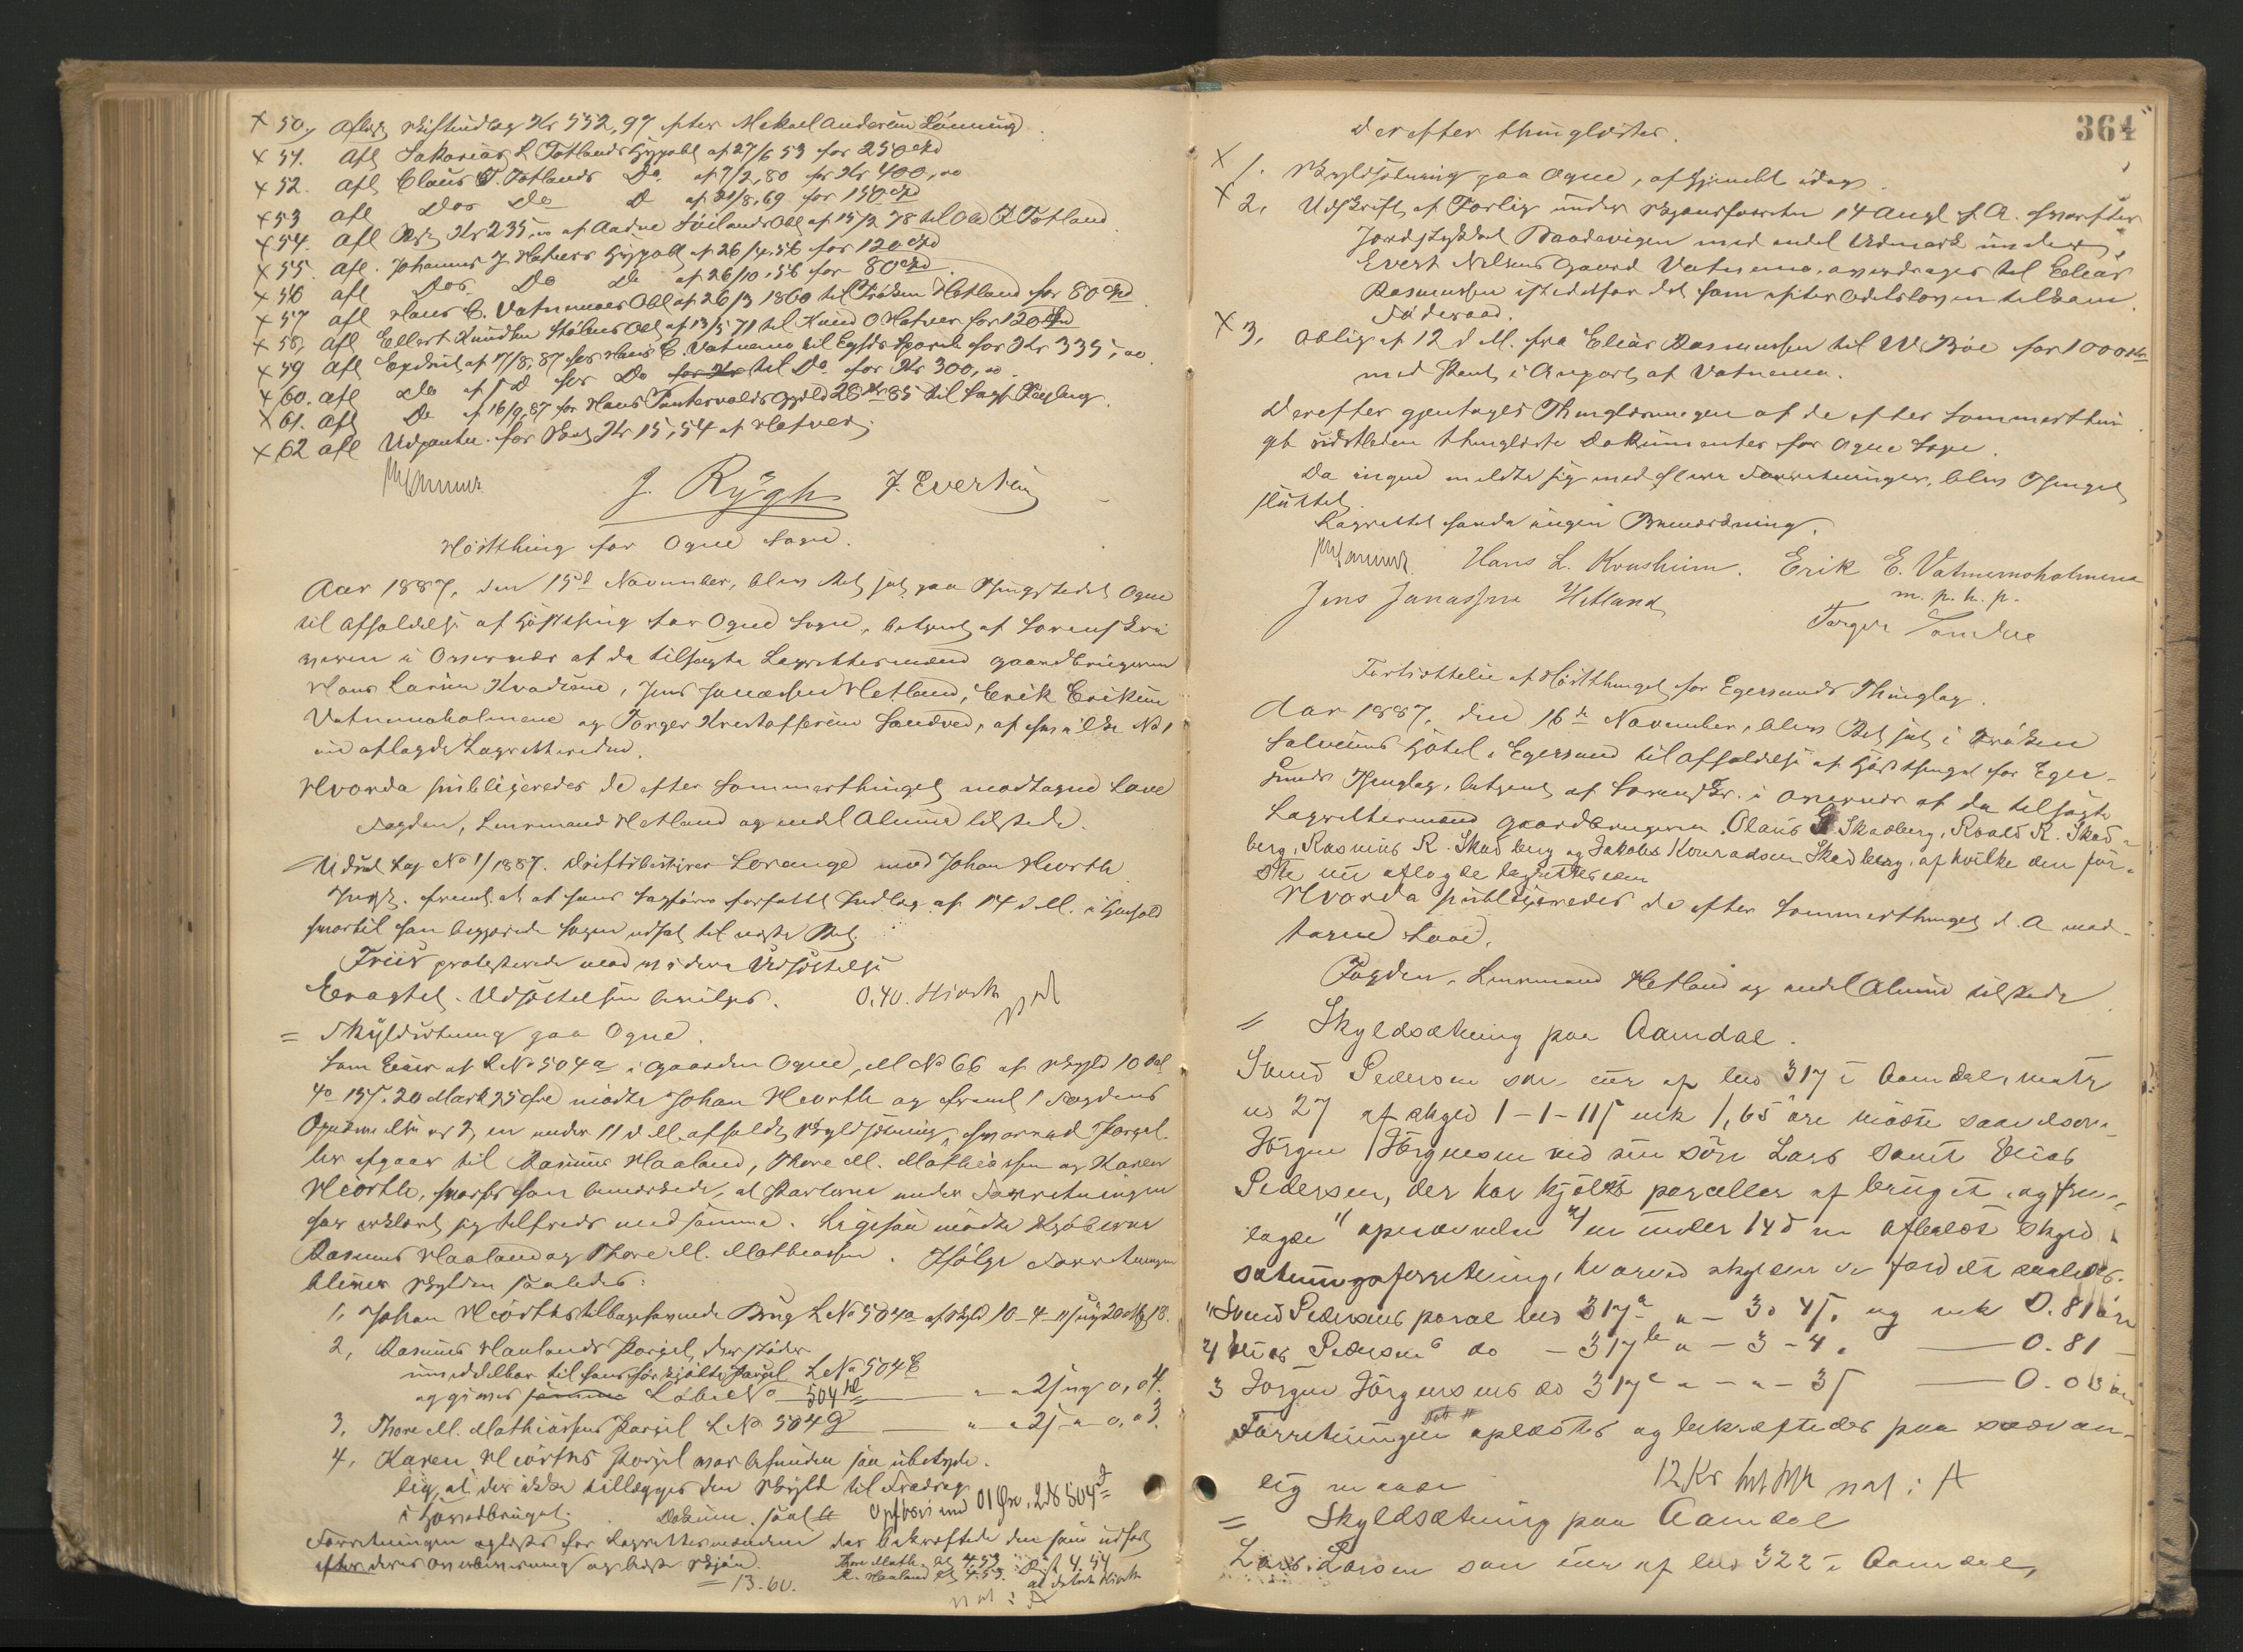 × 50, Aflyst Skifteudlæg Kr 552,97 efter Mekael Andersen Lønning
× 51. Afl Sakarias L Totlands Hypobl af 27/6 53 for 250 Spd
× 52. Afl Claus T. Totlands Do. af 7/2, 80 for Kr 400,00
× 53 Afl Dos Do D af 21/8, 69 for 150 Spd
× 54. Afl Kr 235,00 af Aadne Søilands Obl af 15/2 78 til Ole T Totland
× 55. Afl. Johannes J. Hetlands Hypobl af 26/4. 56 for 120 Spd
× 56 Afl Dos Do Do af 26/10. 56 for 80 Spd
× 57 Afl Hans E. Vatnemoes Obl af 26/3 1860 til Frøken Hetland for 80 Spd
× 58, Afl Ellert Knudsen Obl af 13/5 71 til Knud O Hetver for 120 Spd
× 59 Afl Exdrl af 17/8, 87 for Hans E. Vatnemo til Egsds Spareb for Kr 335,00
× 60. Afl Do af s D for Do for Kr til Do. for Kr 300,00
× 61. Afl Do af 16/9, 87 for Hans Puntervolds Gjæld 28 Kr 85 til
× 62 Afl Udpantn. for Skat Kr 15,54 af Hetver
J. Rygh J. Evertsen
Høstthing for Ogne Sogn.
Aar 1887, den 15d November, blev Ret sat paa Thingstedet Ogne
til Afholdelse af Høstthing for Ogne Sogn, betjent af Sorenskri
veren i Overvær af de tilsagte Lagrettesmænd Gaardbrugerne
Hans Larsen Kvadsime, Jens Jonassen Hetland, Erik Eriksen
Vatnemoholmene og Torger Kristoffersen Sandved, af hvilke No 1
nu aflagde Lagretteseden.
Hvorda publiceredes de efter Sommerthinget modtagne Love
Fogden, Lensmand Hetland og endel Almue tilstede.
Udsat Sag No 1/1887. Driftsbestyrer Lorange mod Johan Hiorth
Indst. freml. et af hans Sagfører forfattet Indlæg af 14 d M. i Henhold
hvortil han begjærede Sagen udsat til næste Ret.
Friis protesterede mod videre Udsættelse
Eragtet. Udsættelsen bevilges. 0.40. Hiorth
= Skyldsætning paa Ogne.
Som Eier af LNo 504a i Gaarden Ogne, MNo 66 af Skyld 10 Dal
4o 15s. 20 Mark 25 Øre mødte Johan Hiorth og freml 1 Fogdens
Opnævnelse og 2, en under 11 d M. afholdt Skyldsætning, hvorved Parcel
ler afgaar til Rasmus Haaland, Thore M. Mathiassen og Karen
Hiorth, hvorhos han bemærkede, at Parterne under Forretningen
har erklært sig tilfreds med samme. Ligesaa mødte Kjøberne
Rasmus Haaland og Thore M. Mathiassen. Ifølge Forretningen
bliver Skylden saaledes:
1, Johan Hiorths tilbageværende Brug LNo 504a af Skyld 10 – 4 – 11 s ny 20 Mk 18.
2, Rasmus Haalands Parcel, der støder
umiddelbar til hans før kjøbte Parcel LNo 504
og gives samme LøbeNo 504 " " 2 s ny 0,04.
3, Thore M. Mathiassens Parcel LNo 504g " " 2 s – " 0,03.
4, Karen Hiorths Parcel var befunden saa ubetyde-
lig, at der ikke tillægges den Skyld til Fradrag
i Hovedbruget. opføres med 01 Øre, LNo 504
Forretningen oplæstes for Lagrettesmændene der bekræftede den som udført
efter deres Overbevisning og bedste Skjøn.
= 13.60.
Thore Math. bet 4.53
R. Haaland bet 4.53. Rest 4,54
Derefter thinglæstes
364
× 1. Skyldsætning paa Ogne, afhjemlet idag.
× 2, Udskrift af Forlig under Skjønsforretn 14 Augl f. A. hvorefter
Jordstykket Baadevigen med endel Udmark under
Evert Nilsens Gaard Vatnemo, overdrages til Elias
Rasmussen istedetfor det ham efter Odelsloven tilkom.
Føderaad.
× 3, Oblig af 12 d M. fra Elias Rasmussen til W. Bøe for 1000 Kr
med Pant i Anpart af Vatnemo.
Derefter gjentoges Thinglæsningen af de efter Sommerthin
get sidstleden thinglæste Dokumenter for Ogne Sogn.
Da ingen meldte sig med flere Forretninger, blev Thinget
sluttet
Lagrettet havde ingen Bemærkning.
Hans L. Kvashime. Erik E. Vatnemoholmene
m. p. h. p.
Jens Janassen Hetland
Torger Sandve
Fortsættelse af Høstthinget for Egersunds Thinglag.
Aar 1887, den 16de November, blev Ret sat i Frøken
Salvesens Hotel i Egersund til Afholdelse af Høstthinget for Eger-
sunds Thinglag, betjent af Sorenskr. i Overvær af de tilsagte
Lagrettesmænd Gaardbrugerne Olaus G. Skadberg, Roald R. Skad-
berg, Rasmus R. Skadberg og Jakob Konradsen Skadberg, af hvilke den før-
ste nu aflagde lagretteseden
Hvorda publiceredes de efter Sommerthinget d. A mod-
tagne Love.
Fogden, Lensmand Hetland og endel Almue tilstede
= Skyldsætning paa Aamdal.
Svend Pedersen som eier af lno 317 i Aamdal, matr
no 27 af skyld 1 – 1 – 11 s mk 1,65 øre mødte saavelsom
Jørgen Jørgensen ved sin søn Lars samt Elias
Pedersen, der har kjøbt parceller af bruget, og frem-
lagde 1/ opnævnelse 2/ en under 14 d m afholdt skyld
sætningsforretning, hvorved skylden er fordelt saaledes.
1/ Svend Pedersens parcel lno 317a " – 3o 4 s. ny mk 0.81 øre
2/ Elias Pedersens do – 317b " – 3 – 4. — 0.81 –
3 Jørgen Jørgensens do 317c " – " – 3 s — 0.03 øre
Forretningen oplæstes og bekræftedes paa sædvan-
lig maade 12 Kr
= Skyldsætning paa Aamdal
Lars Larsen som eier af lno 322 i Aamdal,